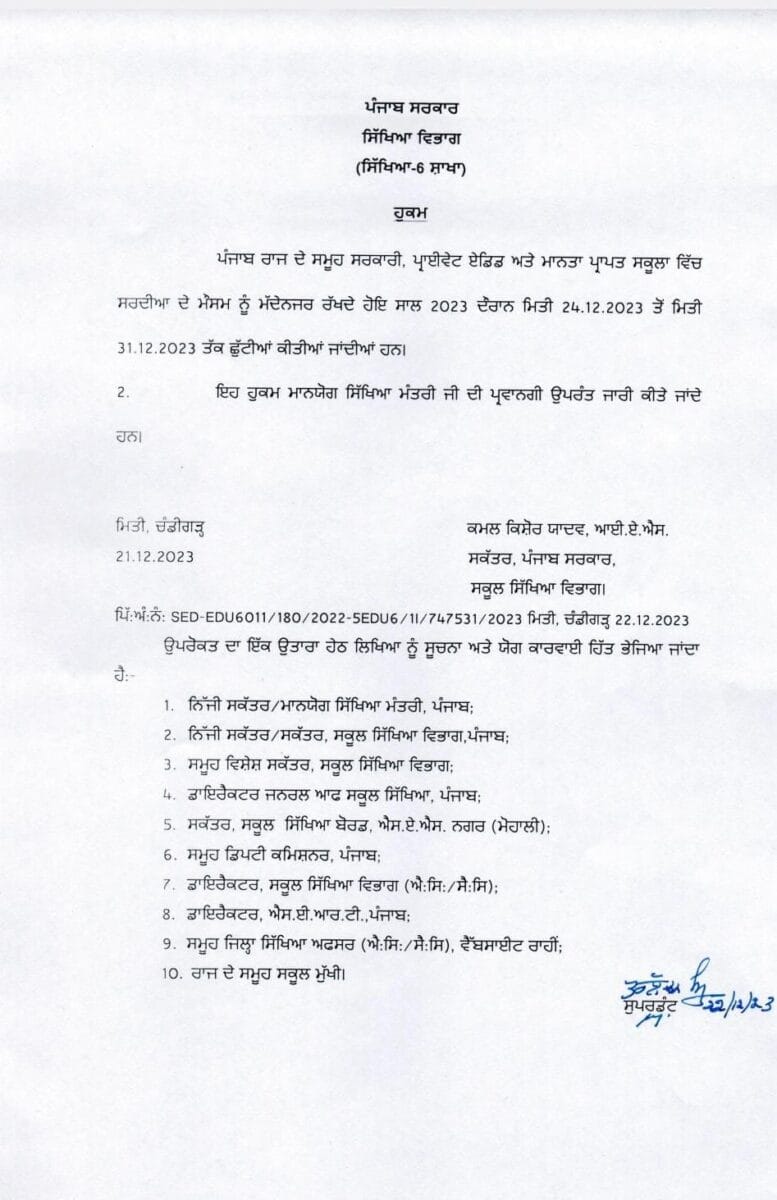 ਪੰਜਾਬ ਸਰਕਾਰ
ਸਿੱਖਿਆ ਵਿਭਾਗ
(ਸਿੱਖਿਆ-6 ਸ਼ਾਖਾ)
ਹੁਕਮ
ਪੰਜਾਬ ਰਾਜ ਦੇ ਸਮੂਹ ਸਰਕਾਰੀ, ਪ੍ਰਾਈਵੇਟ ਏਡਿਡ ਅਤੇ ਮਾਨਤਾ ਪ੍ਰਾਪਤ ਸਕੂਲਾ ਵਿੱਚ
ਸਰਦੀਆ ਦੇ ਮੌਸਮ ਨੂੰ ਮੱਦੇਨਜਰ ਰੱਖਦੇ ਹੋਇ ਸਾਲ 2023 ਦੌਰਾਨ ਮਿਤੀ 24.12.2023 ਤੋਂ ਮਿਤੀ
31.12.2023 ਤੱਕ ਛੁੱਟੀਆਂ ਕੀਤੀਆਂ ਜਾਂਦੀਆਂ ਹਨ।
2. ਇਹ ਹੁਕਮ ਮਾਨਯੋਗ ਸਿੱਖਿਆ ਮੰਤਰੀ ਜੀ ਦੀ ਪ੍ਰਵਾਨਗੀ ਉਪਰੰਤ ਜਾਰੀ ਕੀਤੇ ਜਾਂਦੇ
ਹਨ।
ਮਿਤੀ, ਚੰਡੀਗੜ੍ਹ ਕਮਲ ਕਿਸ਼ੋਰ ਯਾਦਵ, ਆਈ.ਏ.ਐਸ.
21.12.2023 ਸਕੱਤਰ, ਪੰਜਾਬ ਸਰਕਾਰ,
ਸਕੂਲ ਸਿੱਖਿਆ ਵਿਭਾਗ।
ਪਿੱ:ਅੰ:ਨੰ: SED-EDU6011/180/2022-5EDU6/1I/747531/2023 ਮਿਤੀ, ਚੰਡੀਗੜ੍ਹ 22.12.2023
ਉਪਰੋਕਤ ਦਾ ਇੱਕ ਉਤਾਰਾ ਹੇਠ ਲਿਖਿਆ ਨੂੰ ਸੂਚਨਾ ਅਤੇ ਯੋਗ ਕਾਰਵਾਈ ਹਿੱਤ ਭੇਜਿਆ ਜਾਂਦਾ
ਹੈ:-
1. ਨਿੱਜੀ ਸਕੱਤਰ/ਮਾਨਯੋਗ ਸਿੱਖਿਆ ਮੰਤਰੀ, ਪੰਜਾਬ;
2. ਨਿੱਜੀ ਸਕੱਤਰ/ਸਕੱਤਰ, ਸਕੂਲ ਸਿੱਖਿਆ ਵਿਭਾਗ,ਪੰਜਾਬ;
3. ਸਮੂਹ ਵਿਸ਼ੇਸ਼ ਸਕੱਤਰ, ਸਕੂਲ ਸਿੱਖਿਆ ਵਿਭਾਗ;
4. ਡਾਇਰੈਕਟਰ ਜਨਰਲ ਆਫ ਸਕੂਲ ਸਿੱਖਿਆ, ਪੰਜਾਬ;
5. ਸਕੱਤਰ, ਸਕੂਲ ਸਿੱਖਿਆ ਬੋਰਡ, ਐਸ.ਏ.ਐਸ. ਨਗਰ (ਮੋਹਾਲੀ);
6. ਸਮੂਹ ਡਿਪਟੀ ਕਮਿਸ਼ਨਰ, ਪੰਜਾਬ;
7. ਡਾਇਰੈਕਟਰ, ਸਕੂਲ ਸਿੱਖਿਆ ਵਿਭਾਗ (ਐ:ਸਿ:/ਸੈ:ਸਿ);
8. ਡਾਇਰੈਕਟਰ, ਐਸ.ਈ.ਆਰ.ਟੀ.,ਪੰਜਾਬ;
9. ਸਮੂਹ ਜਿਲ੍ਹਾ ਸਿੱਖਿਆ ਅਫਸਰ (ਐ:ਸਿ:/ਸੈ:ਸਿ), ਵੈੱਬਸਾਈਟ ਰਾਹੀਂ;
10. ਰਾਜ ਦੇ ਸਮੂਹ ਸਕੂਲ ਮੁੱਖੀ।
22/12/23
ਸੁਪਰਡੰਟ